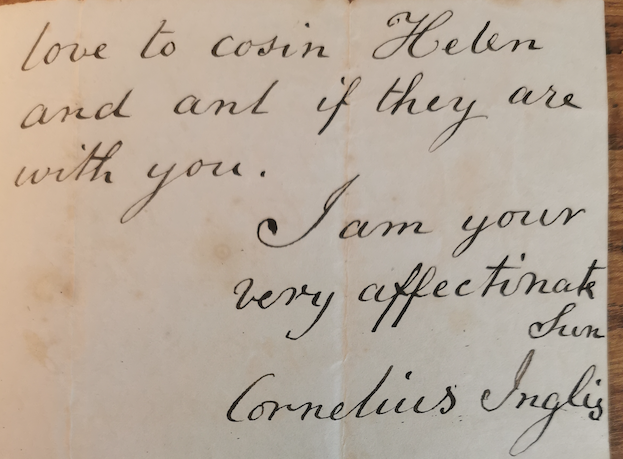 love to cosin Helen
and ant if they are
with you.
I am your
very affectinate
Sun
Cornelius Inglis